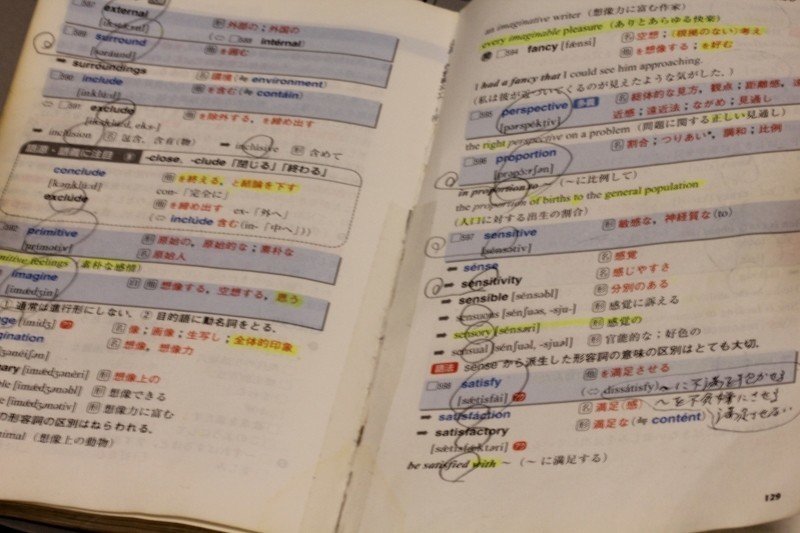 587 external
形 外部の;外国の
(⇔ 588 intérnal)
589 surround
[səráund]
他 を囲む
surroundings
名 環境 (≒ environment)
590 include
[inklú:d]
他 を含む (≒ contáin)
⇔ 591 exclude
他 を除外する, を締め出す
inclusion 名 包含, 含有(物) ➡ inclusive 形 含めて
語源・語義に注目 -close, -clude「閉じる」「終わる」
conclude
[kənklú:d]
他 を終える, と結論を下す
con-「完全に」
exclúde
他 を締め出す
ex-「外へ」
(⇔ inclúde 含む (in-「中へ」))
592 primitive
[prímətiv]
形 原始の, 原始的な;素朴な
名 原始人
feelings (素朴な感情)
imagine
[imǽdʒin]
自 他 想像する, 空想する, 思う
① 通常は進行形にしない. ② 目的語に動名詞をとる.
[ímidʒ] ア
名 像;画像;生写し;全体的印象
名 想像, 想像力
[imǽdʒənèri] 形 想像上の
[imǽdʒənəbl] 形 想像できる
[imǽdʒənətiv] 形 想像力に富む
の形容詞の区別はねらわれる.
animal (想像上の動物)
an imaginative writer (想像力に富む作家)
every imaginable pleasure (ありとあらゆる快楽)
594 fancy [fǽnsi]
名 空想;(根拠のない)考え
他 を想像する;を好む
I had a fancy that I could see him approaching.
(私は彼が近づいてくるのが見えたような気がした.)
595 perspective 多義
[pərspéktiv]
名 総体的な見方, 観点;距離感, 遠
近感;遠近法;ながめ;見通し
the right perspective on a problem (問題に関する正しい見通し)
596 proportion
[prəpɔ́:rʃən]
名 割合;つりあい, 調和;比例
in proportion to ~ (~に比例して)
the proportion of births to the general population
(人口に対する出生の割合)
597 sensitive
[sénsətiv]
形 敏感な, 神経質な(to)
➡ sénse
名 感覚
➡ sensitivity
名 感じやすさ
➡ sensible [sénsəbl]
形 分別のある
➡ sensuous [sénʃuəs, -sju-]
形 感覚に訴える
➡ sensory [sénsəri]
形 感覚の
➡ sensual [sénʃuəl, -sjuəl]
形 官能的な;好色の
語法 sense から派生した形容詞の意味の区別はとても大切.
598 satisfy
[sǽtisfài] ア
他 を満足させる
(⇔ dissátisfy)
➡ satisfáction
名 満足(感)
➡ satisfactory
[sæ̀tisfǽktəri] ア
形 満足な (≒ contént)
be satisfied with ~ (~に満足する)
129